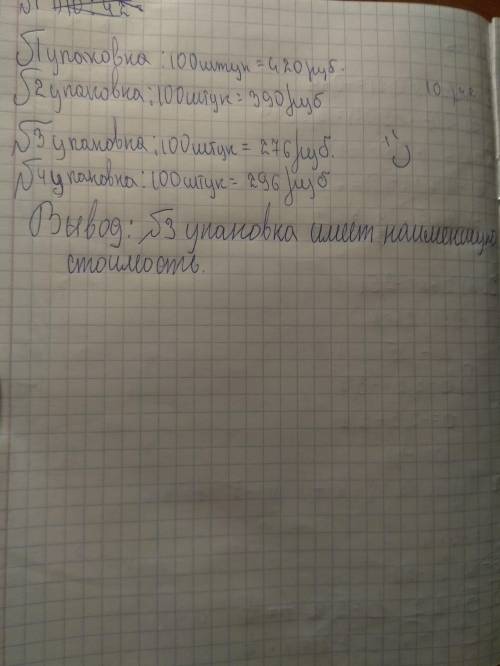 №1 упаковка: 100 штук = 420 руб.
№2 упаковка: 100 штук = 390 руб
№3 упаковка: 100 штук = 276 руб.
№4 упаковка: 100 штук = 296 руб
Вывод: №3 упаковка имеет наименшую
стоимость.